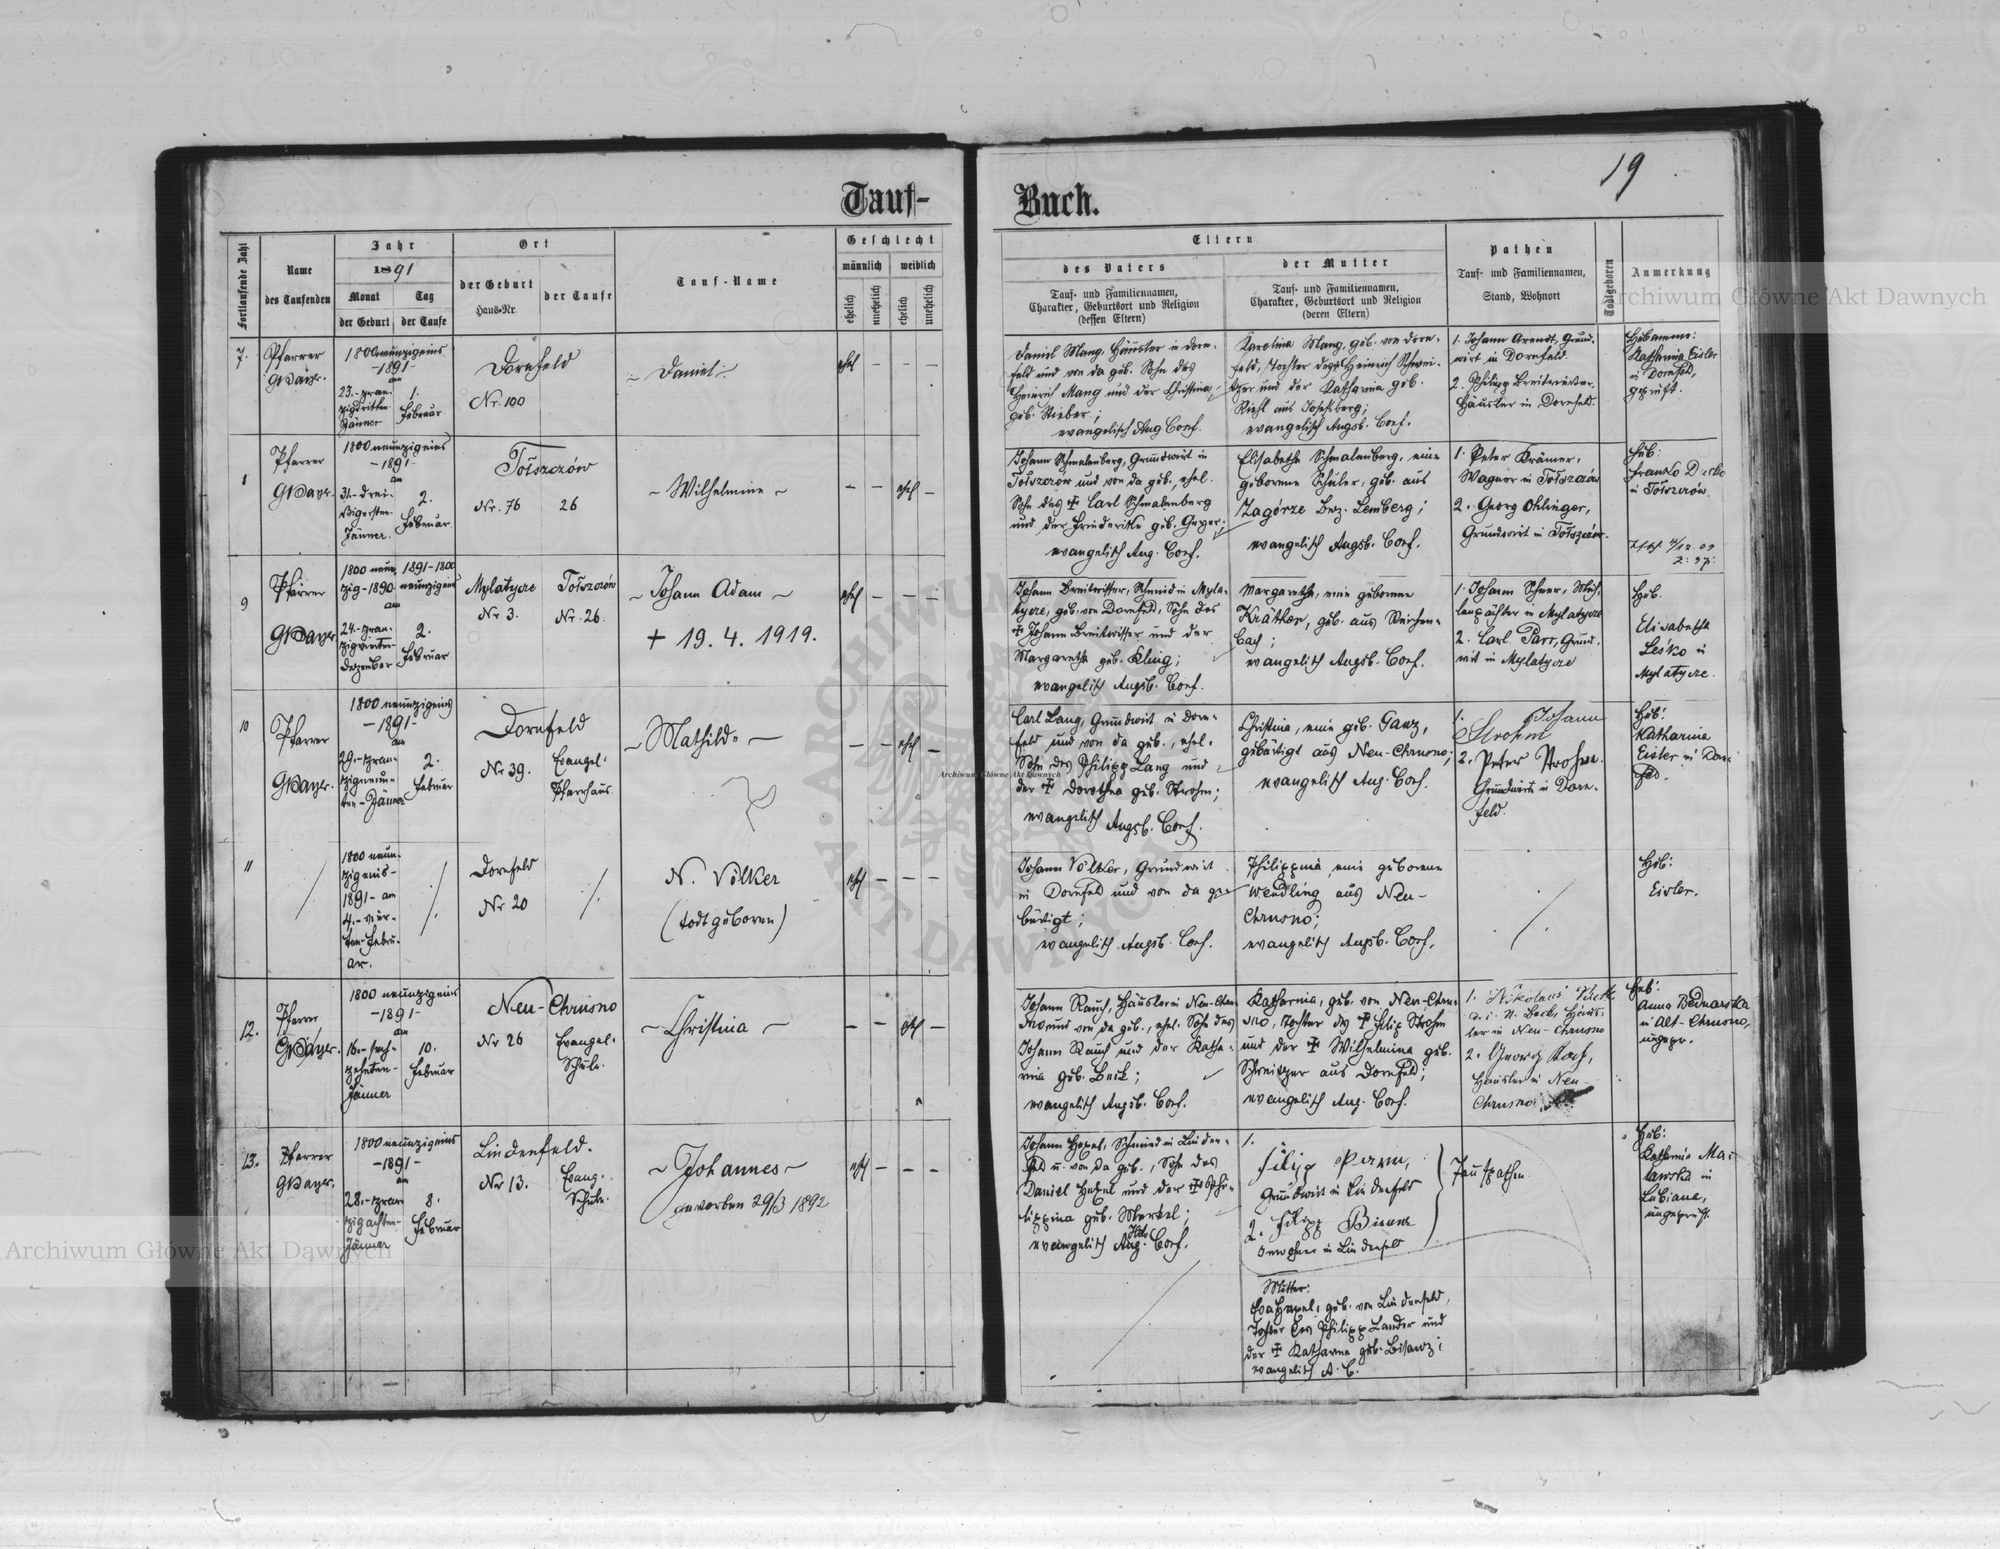 19
Tauf-
Buch.
Fortlaufende Zahl
Name
des Taufenden
Jahr
1891
Monat
der Geburt
Tag
der Taufe
Ort
der Geburt
Haus-Nr.
der Taufe
Tauf-Name
Geschlecht
männlich
weiblich
ehelich
unehelich
ehelich
unehelich
Eltern
des Vaters
Tauf- und Familiennamen,
Charakter, Geburtsort und Religion
(dessen Eltern)
der Mutter
Tauf- und Familiennamen,
Charakter, Geburtsort und Religion
(deren Eltern)
Pathen
Tauf- und Familiennamen,
Stand, Wohnort
Todtgeboren
Anmerkung
7.
Pfarrer
1800 neunzigeins
- 1891 -
am
Jänner
1.
Februar
Dornfeld
Nr. 100
- Daniel -
ehel
Daniel Mang, Häusler in Dorn-
feld und von da geb. Sohn des
Heinrich Mang und der Christina,
geb. Stieber;
evangelisch Aug Conf.
Karolina Mang, geb. von Dorn-
feld, Tochter des Heinrich Schwei-
tzer und der Katharina geb.
Riehl aus Josefsberg;
evangelisch Augsb. Conf.
1. Johann Arendt, Grund-
wirt in Dornfeld.
2. Philipp Breitwieser,
Häusler in Dornfeld.
Hebamme:
Katharina Eisler
in Dornfeld,
geprüft.
Pfarrer
1800 neunzigeins
- 1891 -
am
31.-drei-
ßigersten
Jänner.
2.
Februar
Tołszczów
Nr. 76
26
- Wilhelmine -
ehel
Johann Schmalenberg, Grundwirt in
Tołszczow und von da geb., ehel.
Sohn des ✝ Carl Schmalenberg
und der Friederike geb. Geyer;
evangelisch Aug. Conf.
Elisabetha Schmalenberg, eine
geborene Schüler, geb. aus
Zagórze Bez. Lemberg;
evangelisch Augsb. Conf.
1. Peter Krämer,
Wagner in Tołszczów
2. Georg Ohlinger,
Grundwirt in Tołszczów.
Heb:
in Tołszczów.
9
Pfarrer
1800 neun-
zig-1890-
am
Dezember
1891-1800
neunzigeins
2.
Februar
Mylatycze
Nr 3.
Tołszczów
Nr. 26.
- Johann Adam -
+ 19. 4. 1919.
ehel
Johann Breitwisser, Schmied in Myla-
tycze, geb. von Dornfeld, Sohn des
✝ Johann Breitwisser und der
Margaretha geb. Kling;
evangelisch Augsb. Conf.
Margaretha, eine geborene
Krather, geb. aus Reichen-
bach;
evangelisch Augsb. Conf.
1. Johann Scherer, Müh-
lenpächter in Mylatycze
2. Carl Parr, Grund-
wirt in Mylatycze
Heb.
Elisabetha
Leśko in
Mylatycze.
10
Pfarrer
1800 neunzigeins
- 1891 -
am
ten - Jänner
2.
Februar
Dornfeld
Nr 39.
Evangel.
Pfarrhaus.
- Mathilde -
ehel
Carl Lang, Grundwirt in Dorn-
feld und von da geb., ehel.
Sohn des Philipp Lang und
der ✝ Dorothea geb. Strohm;
evangelisch Augsb. Conf.
Christina, eine geb. Ganz,
gebürtigt aus Neu-Chrusno;
evangelisch Aug. Conf.
1. Johann
Strohm
2. Peter Strohm
Grundwirte in Dorn-
feld.
Heb:
Katharina
Eisler in Dorn-
feld.
11
1800 neun-
zigeins-
1891- am
4.-vier-
ten-Febru-
ar.
Dornfeld
Nr 20
N. Völker
(todtgeboren)
ehel
Johann Völker, Grundwirt
in Dornfeld und von da ge-
bürtigt;
evangelisch Augsb. Conf.
Philippina, eine geborene
Wendling aus Neu-
Chrusno;
evangelisch Augsb. Conf.
Heb:
Eisler.
12.
Pfarrer
1800 neunzigeins
- 1891 -
am
16.-sech-
zehnten-
Jänner
10.
Februar
Neu-Chrusno
Nr 26
Evangel.
Schule.
- Christina -
ehel
Johann Rauch, Häusler in Neu-Chrus-
no und von da geb., ehel. Sohn des
Johann Rauch und der Katha-
rina geb. Beck;
evangelisch Augsb. Conf.
Katharina, geb. von Neu-Chrus-
no, Tochter des ✝ Filip Strohm
und der ✝ Wilhelmina geb.
Schweitzer aus Dornfeld;
evangelisch Aug. Conf.
1. Nikolaus Beck
d. i. N. Beck, Häus-
ler in Neu-Chrusno
2. Georg Koch,
Häusler in Neu-
Chrusno
Heb:
Anna Bednarska
in Alt-Chrusno,
ungepr.
13.
Pfarrer
1800 neunzigeins
- 1891 -
am
zig achten-
Jänner
8.
Februar
Lindenfeld.
Nr 13.
Evang.
Schule.
- Johannes -
gestorben 29/3 1892
ehel
Johann Hexel, Schmied in Linden-
feld u. von da geb., Sohn des
Daniel Hexel und der ✝ Phi-
lippina geb. Merkel;
evangelisch Aug. Conf.
1.
Grundwirt in Lindenfeld
2. Filipp Bisanz
Inwohner in Lindenfeld
Taufpathen
Mutter:
Eva Hexel, geb. von Lindenfeld,
Tochter des Philipp Lander und
der ✝ Katharina geb. Bisanz;
evangelisch A. C.
Heb:
Katharina Ma-
in
Lubiana,
ungeprüft.
Archiwum Główne Akt Dawnych
Archiwum Główne Akt Dawnych
Archiwum Główne Akt Dawnych